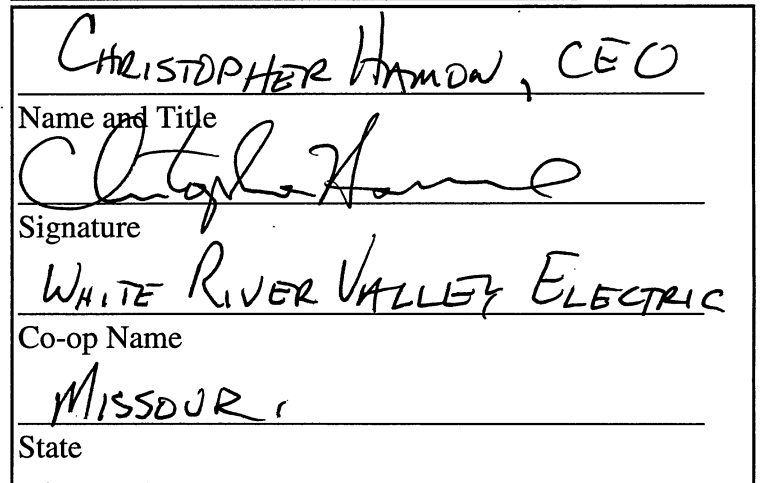 CHRISTOPHER HAMON, CEO
Name and Title
Christopher Hamon
Signature
WHITE RIVER VALLEY ELECTRIC
Co-op Name
MISSOURI
State